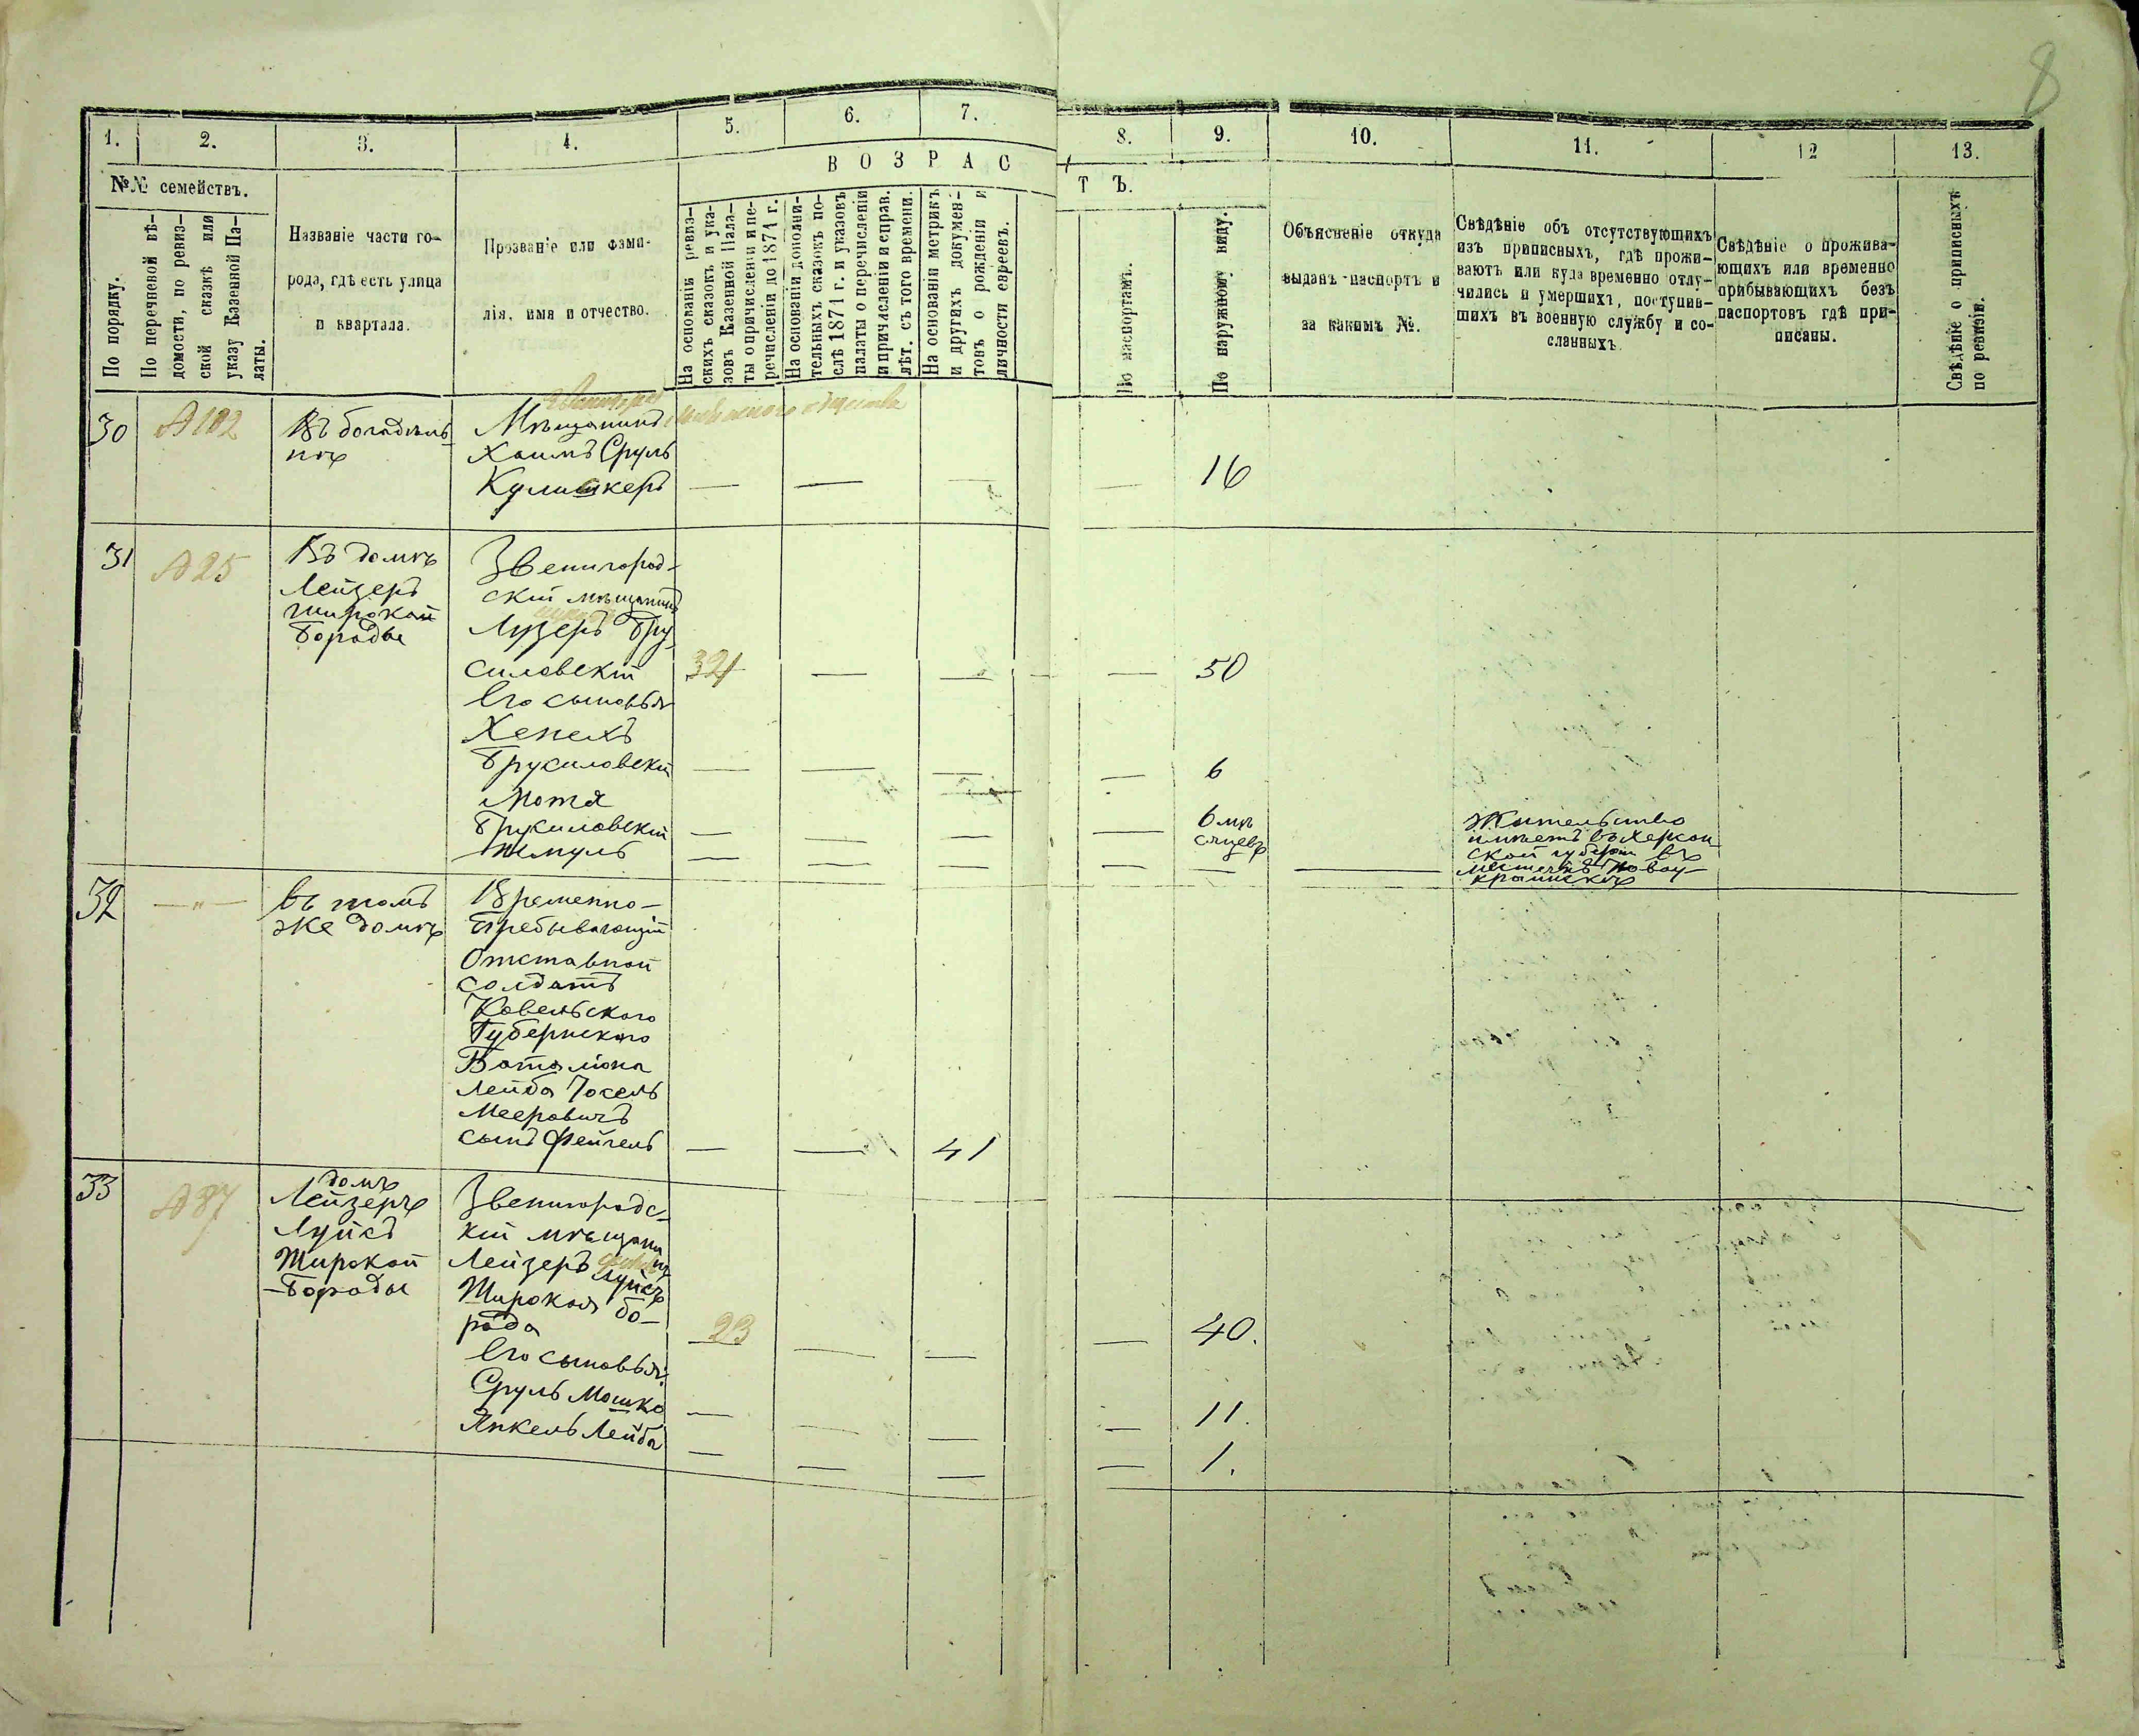 8
1. 2. 3. 4. 5. 6. 7. 8. 9. 10. 11. 12 13.
№№ семействъ.
По порядку.
По перечневой вѣ-
домости, по ревиз-
ской сказкѣ или
указу Казенной Па-
латы.
Названіе части го-
рода, гдѣ есть улица
и квартала.
Прозваніе или фами-
лія, имя и отчество.
ВОЗРАС
ТЪ.
На основаніи ревиз-
скихъ сказокъ и ука-
зовъ Казенной Пала-
ты о причисленіи и пе-
речисленіи до 1874 г.
На основаніи дополни-
тельныхъ сказокъ по-
слѣ 1874 г. и указовъ
палаты о перечисленіи
и причисленіи и справ.
лѣт. съ того времени.
На основаніи метрикъ
и другихъ докумен-
товъ о рожденіи и
личности евреевъ.
По паспортамъ.
По наружному виду.
Объясненіе откуда
выданъ паспортъ и
за какимъ №.
Свѣдѣніе объ отсутствующихъ
изъ приписныхъ, гдѣ прожи-
ваютъ или куда временно отлу-
чились и умершихъ, поступив-
шихъ въ военную службу и со-
сланныхъ.
Свѣдѣніе о прожива-
ющихъ или временно
прибывающихъ безъ
паспортовъ гдѣ при-
писаны.
Свѣдѣніе о приписныхъ
по ревизіи.
30
102
Въ богадѣль-
нѣ
общества
Мѣщанинъ
Хаимъ Сруль
Кулишкеръ
— — — — 16
31
25
Въ домѣ
Лейзеръ
Широкой
Бороды
Звенигород-
скій мѣщанинъ
Лузеръ Бру-
силовскій
32
— — — 50
Его сыновья
Хенехъ
Брусиловскій
— — — — 6
Мотя
Брусиловскій
— — — — 6 мѣ-
сяцевъ
Шмуль
— — — — — —
Жительство
имѣетъ въ Херсон-
ской губерніи въ
мѣстечкѣ Ново-
краинскѣ
32
— " —
въ томъ
же домѣ
Временно-
Пребывающій
Отставной
солдатъ
Ковельского
Губернского
Баталіона
Лейба Іосель
Мееровичъ
сынъ Фейгель
— — 41
33
87
домѣ
Лейзерѣ
Луисъ
Широкой
-Бороды
Звенигородс-
кій мѣщанинъ
Лейзеръ
Луисъ
Широкая бо-
рода
23
— — — 40.
Его сыновья:
Сруль Мошко
— — — — 11.
Янкель Лейба
— — — — 1.